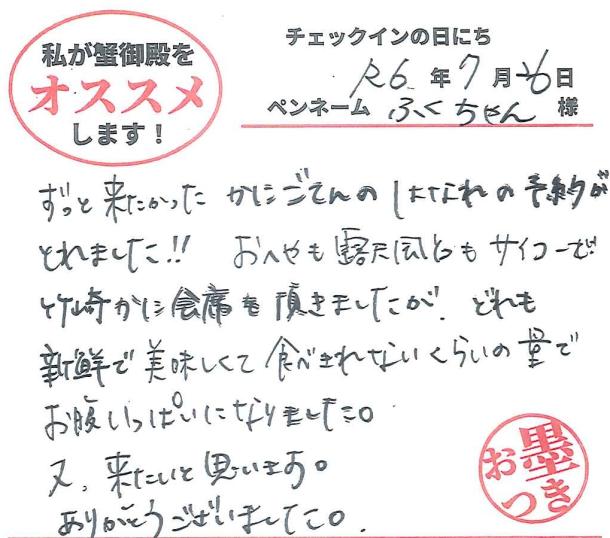 私が蟹御殿を
オススメ
します！
チェックインの日にち
R6年7月26日
ペンネーム ふくちゃん 様
ずっと来たかった かにごてんの はなれの予約が
とれました!! おへやも露天風呂もサイコーで!
竹崎かに会席も頂きましたが、どれも
新鮮で美味しくて食べきれないくらいの量で
お腹いっぱいになりました。
又、来たいと思います。
ありがとうございました。
お墨つき